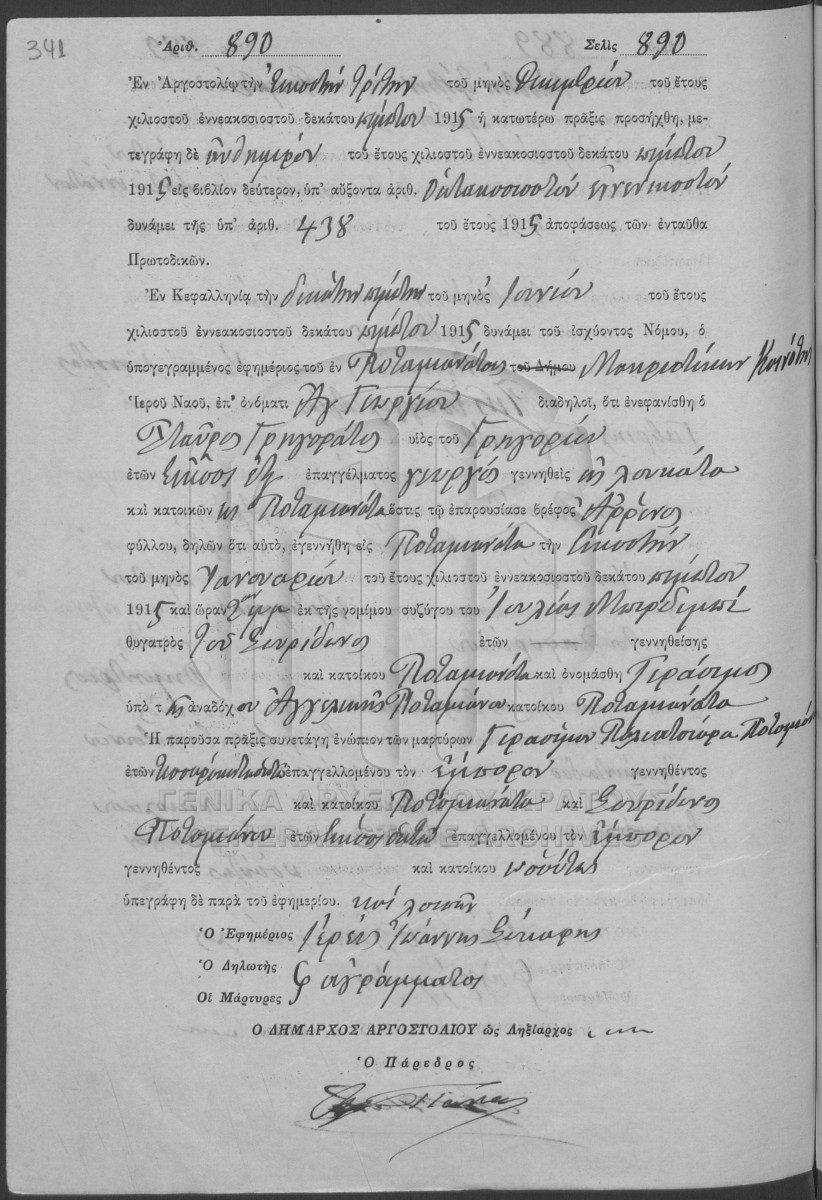 341
Ἀριθ. 890 Σελὶς 890
Ἐν Ἀργοστολίῳ τὴν Εἰκοστὴν τρίτην τοῦ μηνὸς Δεκεμβρίου τοῦ ἔτους
χιλιοστοῦ ἐννεακοσιοστοῦ δεκάτου πέμπτου 1915 ἡ κατωτέρω πρᾶξις προσήχθη, με-
τεγράφη δὲ αὐθημερὸν τοῦ ἔτους χιλιοστοῦ ἐννεακοσιοστοῦ δεκάτου πέμπτου
1915 εἰς βιβλίον δεύτερον, ὑπ' αὔξοντα ἀριθ. ὀκτακοσιοστὸν ἐννενηκοστὸν
δυνάμει τῆς ὑπ' ἀριθ. 438 τοῦ ἔτους 1915 ἀποφάσεως τῶν ἐνταῦθα
Πρωτοδικῶν.
Ἐν Κεφαλληνίᾳ τὴν δεκάτην πέμπτην τοῦ μηνὸς Ἰουνίου τοῦ ἔτους
χιλιοστοῦ ἐννεακοσιοστοῦ δεκάτου πέμπτου 1915 δυνάμει τοῦ ἰσχύοντος Νόμου, ὁ
ὑπογεγραμμένος ἐφημέριος τοῦ ἐν Ποταμιανάτοις τοῦ Δήμου Κοινότης
Ἱεροῦ Ναοῦ, ἐπ' ὀνόματι Ἁγ Γεωργίου διαδηλοῖ, ὅτι ἐνεφανίσθη ὁ
Σταῦρος Γρηγοράτος υἱὸς τοῦ Γρηγορίου
ἐτῶν εἴκοσι ἕξ ἐπαγγέλματος γεωργός γεννηθεὶς εἰς Λουκάτα
καὶ κατοικῶν εἰς Ποταμιανάτα ὅστις τῷ ἐπαρουσίασε βρέφος Ἄρρενος
φύλλου, δηλῶν ὅτι αὐτὸ, ἐγεννήθη εἰς Ποταμιανάτα τὴν Εἰκοστὴν
τοῦ μηνὸς Ἰανουαρίου τοῦ ἔτους χιλιοστοῦ ἐννεακοσιοστοῦ δεκάτου πέμπτου
1915 καὶ ὥραν 2αν μμ ἐκ τῆς νομίμου συζύγου του Ἰουλίας
θυγατρὸς τοῦ Σπυρίδωνος ἐτῶν — γεννηθείσης
καὶ κατοίκου Ποταμιανάτα καὶ ὀνομάσθη Γεράσιμος
ὑπὸ τῆς ἀναδόχου Ἀγγελικῆς Ποταμιάνου κατοίκου Ποταμιανάτα
Ἡ παροῦσα πρᾶξις συνετάγη ἐνώπιον τῶν μαρτύρων Γερασίμου Ποταμιάν
ἐτῶν ἐπαγγελλομένου τὸν ἔμπορον γεννηθέντος
καὶ κατοίκου Ποταμιανάτα καὶ Σπυρίδωνος
Ποταμιάνου ἐτῶν εἴκοσι ὀκτώ ἐπαγγελλομένου τὸν ἔμπορον
γεννηθέντος καὶ κατοίκου
ὑπεγράφη δὲ παρὰ τοῦ ἐφημερίου.
Ὁ Ἐφημέριος Ἱερεὺς Ἰωάννης
Ὁ Δηλωτὴς
Οἱ Μάρτυρες ἀγράμματος
Ο ΔΗΜΑΡΧΟΣ ΑΡΓΟΣΤΟΛΙΟΥ ὡς Ληξίαρχος
Ὁ Πάρεδρος
ΓΕΝΙΚΑ ΑΡΧΕΙΑ ΤΟΥ ΚΡΑΤΟΥΣ